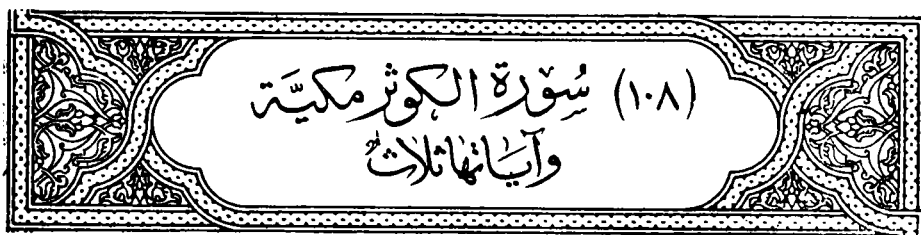 (١٠٨) سُوْرَة الكوثر مكيَّة
وآياتها ثلاث